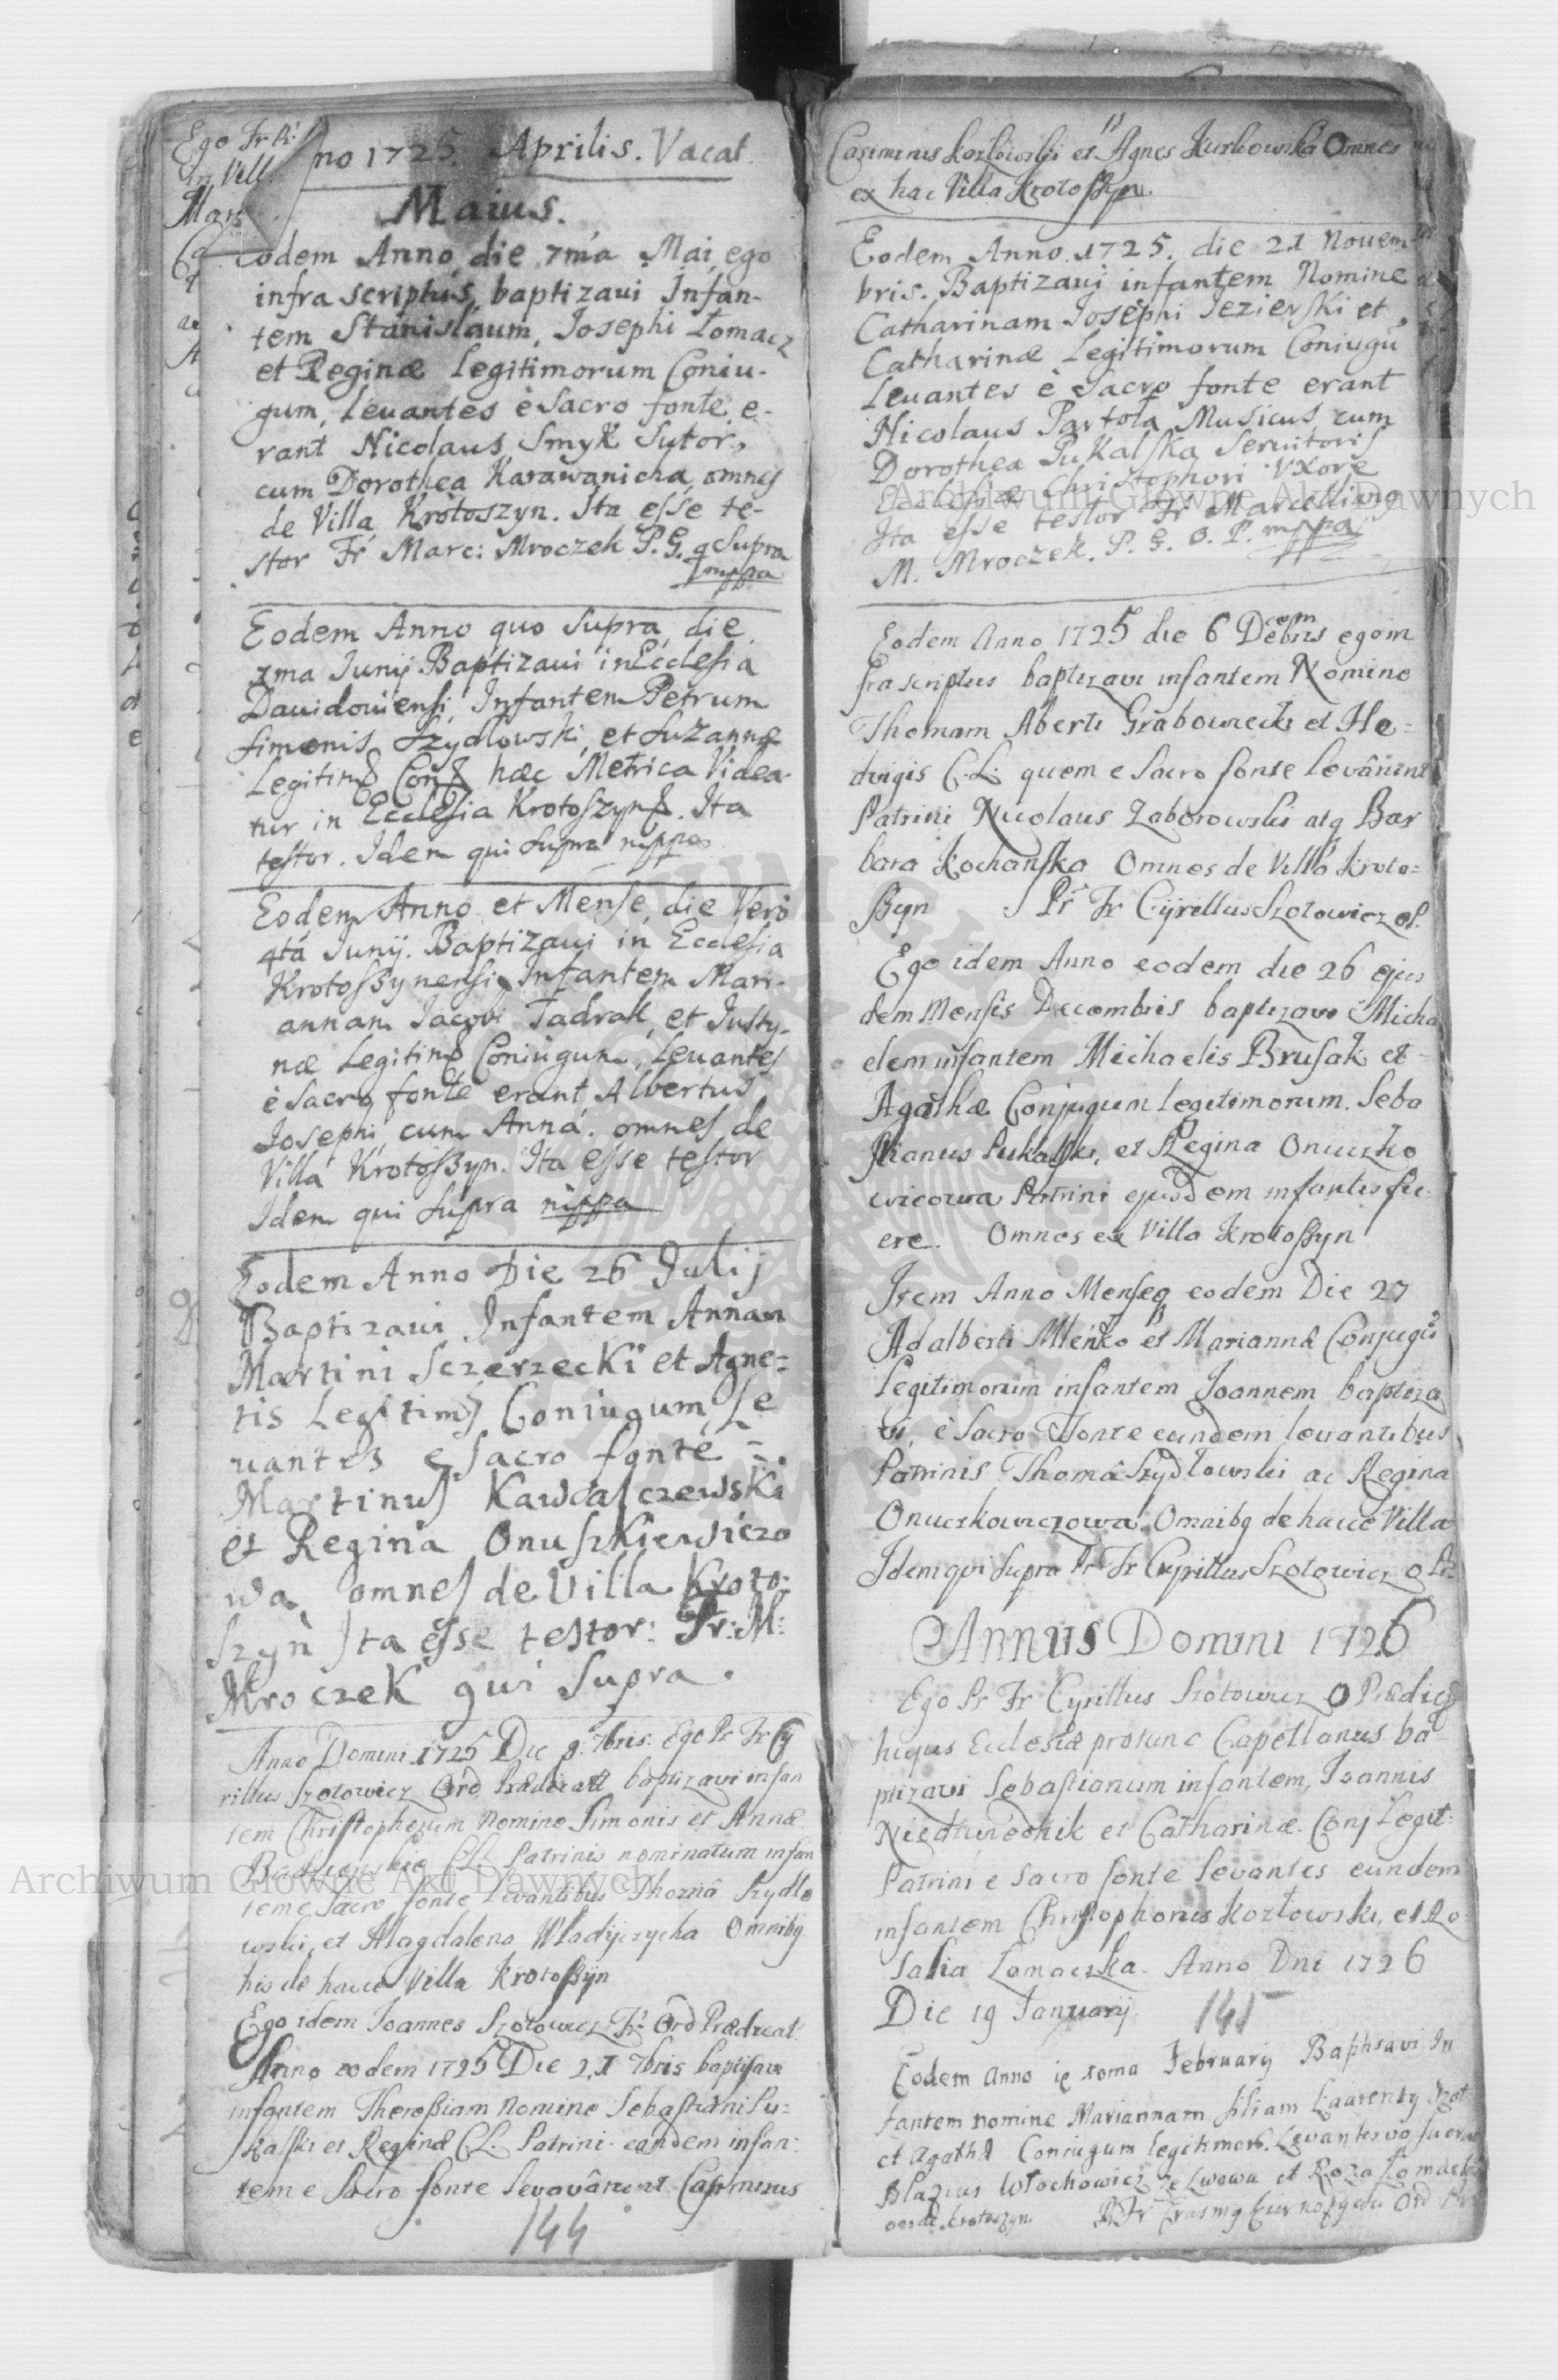 Ego Fr
In Vill
Mar
no 1725. Aprilis. Vacat.
Maius.
Eodem Anno, die 7ma Mai, ego
infra scriptus, baptizaui Infan-
tem Stanislaum, Josephi Łomacz
et Reginæ Legitimorum Coniu-
gum, Leuantes è Sacro fonte, e-
rant Nicolaus Smyk Sutor,
cum Dorothea Karawanicha, omnes
de Villa Krotoszyn. Ita esse te-
stor Fr Marc: Mroczek P. G. q Supra
mppa
Eodem Anno quo Supra, die
Junij Baptizaui in Ecclesia
Dauidouiensi, Infantem Petrum
Simonis Szydłowski, et Suzannæ
Legitim Conj hæc Metrica Videa-
tur in Ecclesia Krotoszyn. Ita
testor. Idem qui Supra mppa
Eodem Anno et Mense, die Vero
4tá Junij. Baptizaui in Ecclesia
Krotosßynensi, Infantem Mari-
annam Jacobi Tadrak, et Justy-
næ Legitim Coniugum, Leuantes
è Sacro fonte erant, Albertus
Josephi, cum Anná. omnes de
Villá Krotosßyn. Ita esse testor
Idem qui Supra mppa
Eodem Anno Die 26 Julij
Baptizaui Infantem Annam
Martini Sczerzecki et Agne=
tis Legitim Coniugum, Le
uantes e Sacro fonte =.
Martinus Kawdasczewski
et Regina Onuszkiewiczo
wa, omnes de Villa Kroto-
szyn Ita esse testor: Fr: M:
Mroczek qui Supra.
Anno Domini 1725 Die 9. 7bris. Ego Pr Fr Cy
rillus Szotowicz Ord Prædicat baptizavi infan
tem Christophorum Nomine Simonis et Annæ
CL Patrinis nominatum infan
tem e Sacro fonte levantibus Thomâ Szydło
wski, et Magdalena Władyczycha Omnibq
his de hacce Villa Krotoßyn
Ego idem Joannes Szotowicz Fr. Ord Prædicat.
Anno eodem 1725 Die 21 7bris baptisavi
infantem Theroßiam nomine Sebastiani Pu=
kalski et Reginæ CL. Patrini eandem infan-
tem e Sacro fonte levavârunt Casimirus
144
Casimirus Kozłowski et Agnes Kurkowska Omnes
ex hac Villa Krotosßyn.
Eodem Anno. 1725. die 21 Nouem
bris. Baptizaui infantem Nomine
Catharinam Josephi Jezierski et
Catharinæ Legitimorum Coniugũ
Leuantes è Sacro fonte erant
Nicolaus Partoła Musicus, cum
Dorothea Pukalska Seruitoris
Ecclesiæ Christophori Vxore
Ita esse testor Fr Marcellinq
M. Mroczek. P. G. O. P. mppa
Eodem Anno 1725 die 6 Decembris ego in
fra scriptus baptizavi infantem Nomine
Thomam Aberti Grabowiecki et He=
dvigis C.L. quem e Sacro fonte levârunt
Patrini Nicolaus Zaborowski atq Bar
bara Kochańska Omnes de Villa Kroto=
ßyn Pr Fr Cyrillus Szotowicz OP.
Ego idem Anno eodem die 26 ejus
dem Mensis Decembris baptizavi Micha
elem infantem Michaelis Brusak et
Agathæ Conjugum legitimorum. Seba
stianus Pukalski, et Regina Onuczko
wicowa Patrini ejusdem infantis fu-
ere. Omnes ex Villa Krotosßyn
Item Anno Menseq eodem Die 27
Adalberti Mleńko et Mariannæ Conjugũ
legitimorum infantem Joannem baptiza
vi, è Sacro Fonte eundem levantibus
Patrinis Thomâ Szydłowski ac Regina
Onuczkowiczowa. Omnibq de hacce Villa
Idem qui Supra Pr Fr Cyrillus Szotowicz O Pr.
Annus Domini 1726
Ego Pr Fr Cyrillus Szotowicz O Prædic
hujus Ecclesiæ protunc Capellanus ba
ptizavi Sebastianum infantem, Joannis
Niedzwiednik et Catharinæ Conj Legit.
Patrini e Sacro fonte levantes eundem
infantem Christophorus Kozłowski, et Ro
salia Lomaczka. Anno Dni 1726
Die 19 Januarij
145
Eodem Anno Februarij Baptisavi In
fantem nomine Mariannam filiam Laurentij
et Agathæ Coniugum legitimor. Levantes
Blazius Włochowicz ze Lwowa et Roza Lomacka
de Krotoszyn. Pr Fr Erasmq Ord
Archiwum Główne Akt Dawnych
Archiwum Główne Akt Dawnych